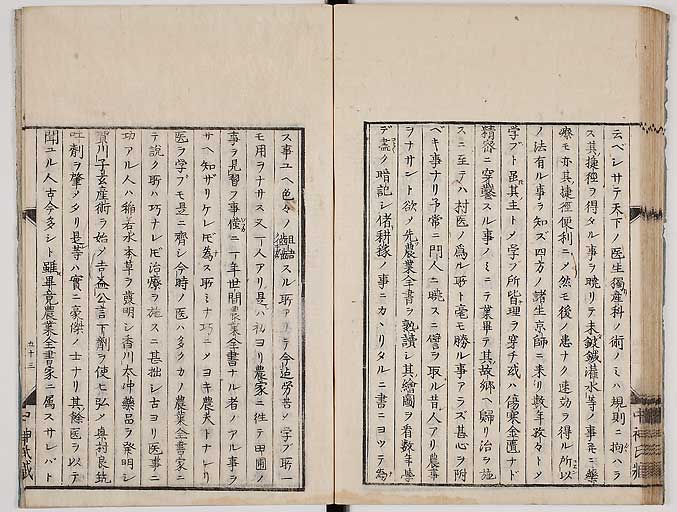 云ベシサテ天下ノ医生獨産科ノ術ノミハ規則ニ拘ハラ
ス其捷徑ヲ得タル事ヲ曉リテ未鍼鍼灌水等ノ事ニ藥
療モ亦其捷徑便利ニメ然モ後ノ患ナク速効ヲ得ル所以
ノ法有ル事ヲ知ズ四方ノ諸生京師ニ来リ数年孜々トメ
学ブト雖其主トメ学フ所皆理ヲ穿チ或ハ傷寒金匱ナド
精密ニ穿鑿スル事ノミニテ業畢テ其故郷ヘ歸リ治ヲ施
スニ至テハ村医ノ爲ル所ト毫モ勝ル事アラズ甚心ヲ附
ベキ事ナリ予常ニ門人ニ曉スニ譬ヲ取ル昔人アリ農事
ヲナサント欲ノ先農業全書ヲ熟讀シ其繪圖ヲ看数年學
デ盡ク暗記シ偖耕稼ノ事ニカヽリタルニ書ニヨツテ為
ス事ユヘ色々ノ スル所アリテ今迠労苦ノ学ブ所一
モ用ヲナサス又一人アリ是ハ初ヨリ農家ニ往テ田圃ノ
事ヲ見習フ事僅ニ一年世間農業全書ナル者ノアル事ヲ
サヘ知ザリケレ𪜈為ス所ミナ巧ニメヨキ農夫トナレリ
医ヲ学プモ是ニ齊シ今時ノ医ハ多クカノ農業全書家ニ
テ説ク所ハ巧ナレ𪜈治療ヲ施スニ甚拙シ古ヨリ医事ニ
功アル人ハ稲若水本草ヲ發明シ香川太冲藥品ヲ発明シ
賀川子玄産術ヲ始メ吉益公言下劑ヲ使ヒ弘メ奥村良筑
吐劑ヲ肇メタリ是等ハ實ニ豪傑ノ士ナリ其餘医ヲ以テ
聞エル人古今多シト雖畢竟農業全書家ニ属スサレバト
五十三